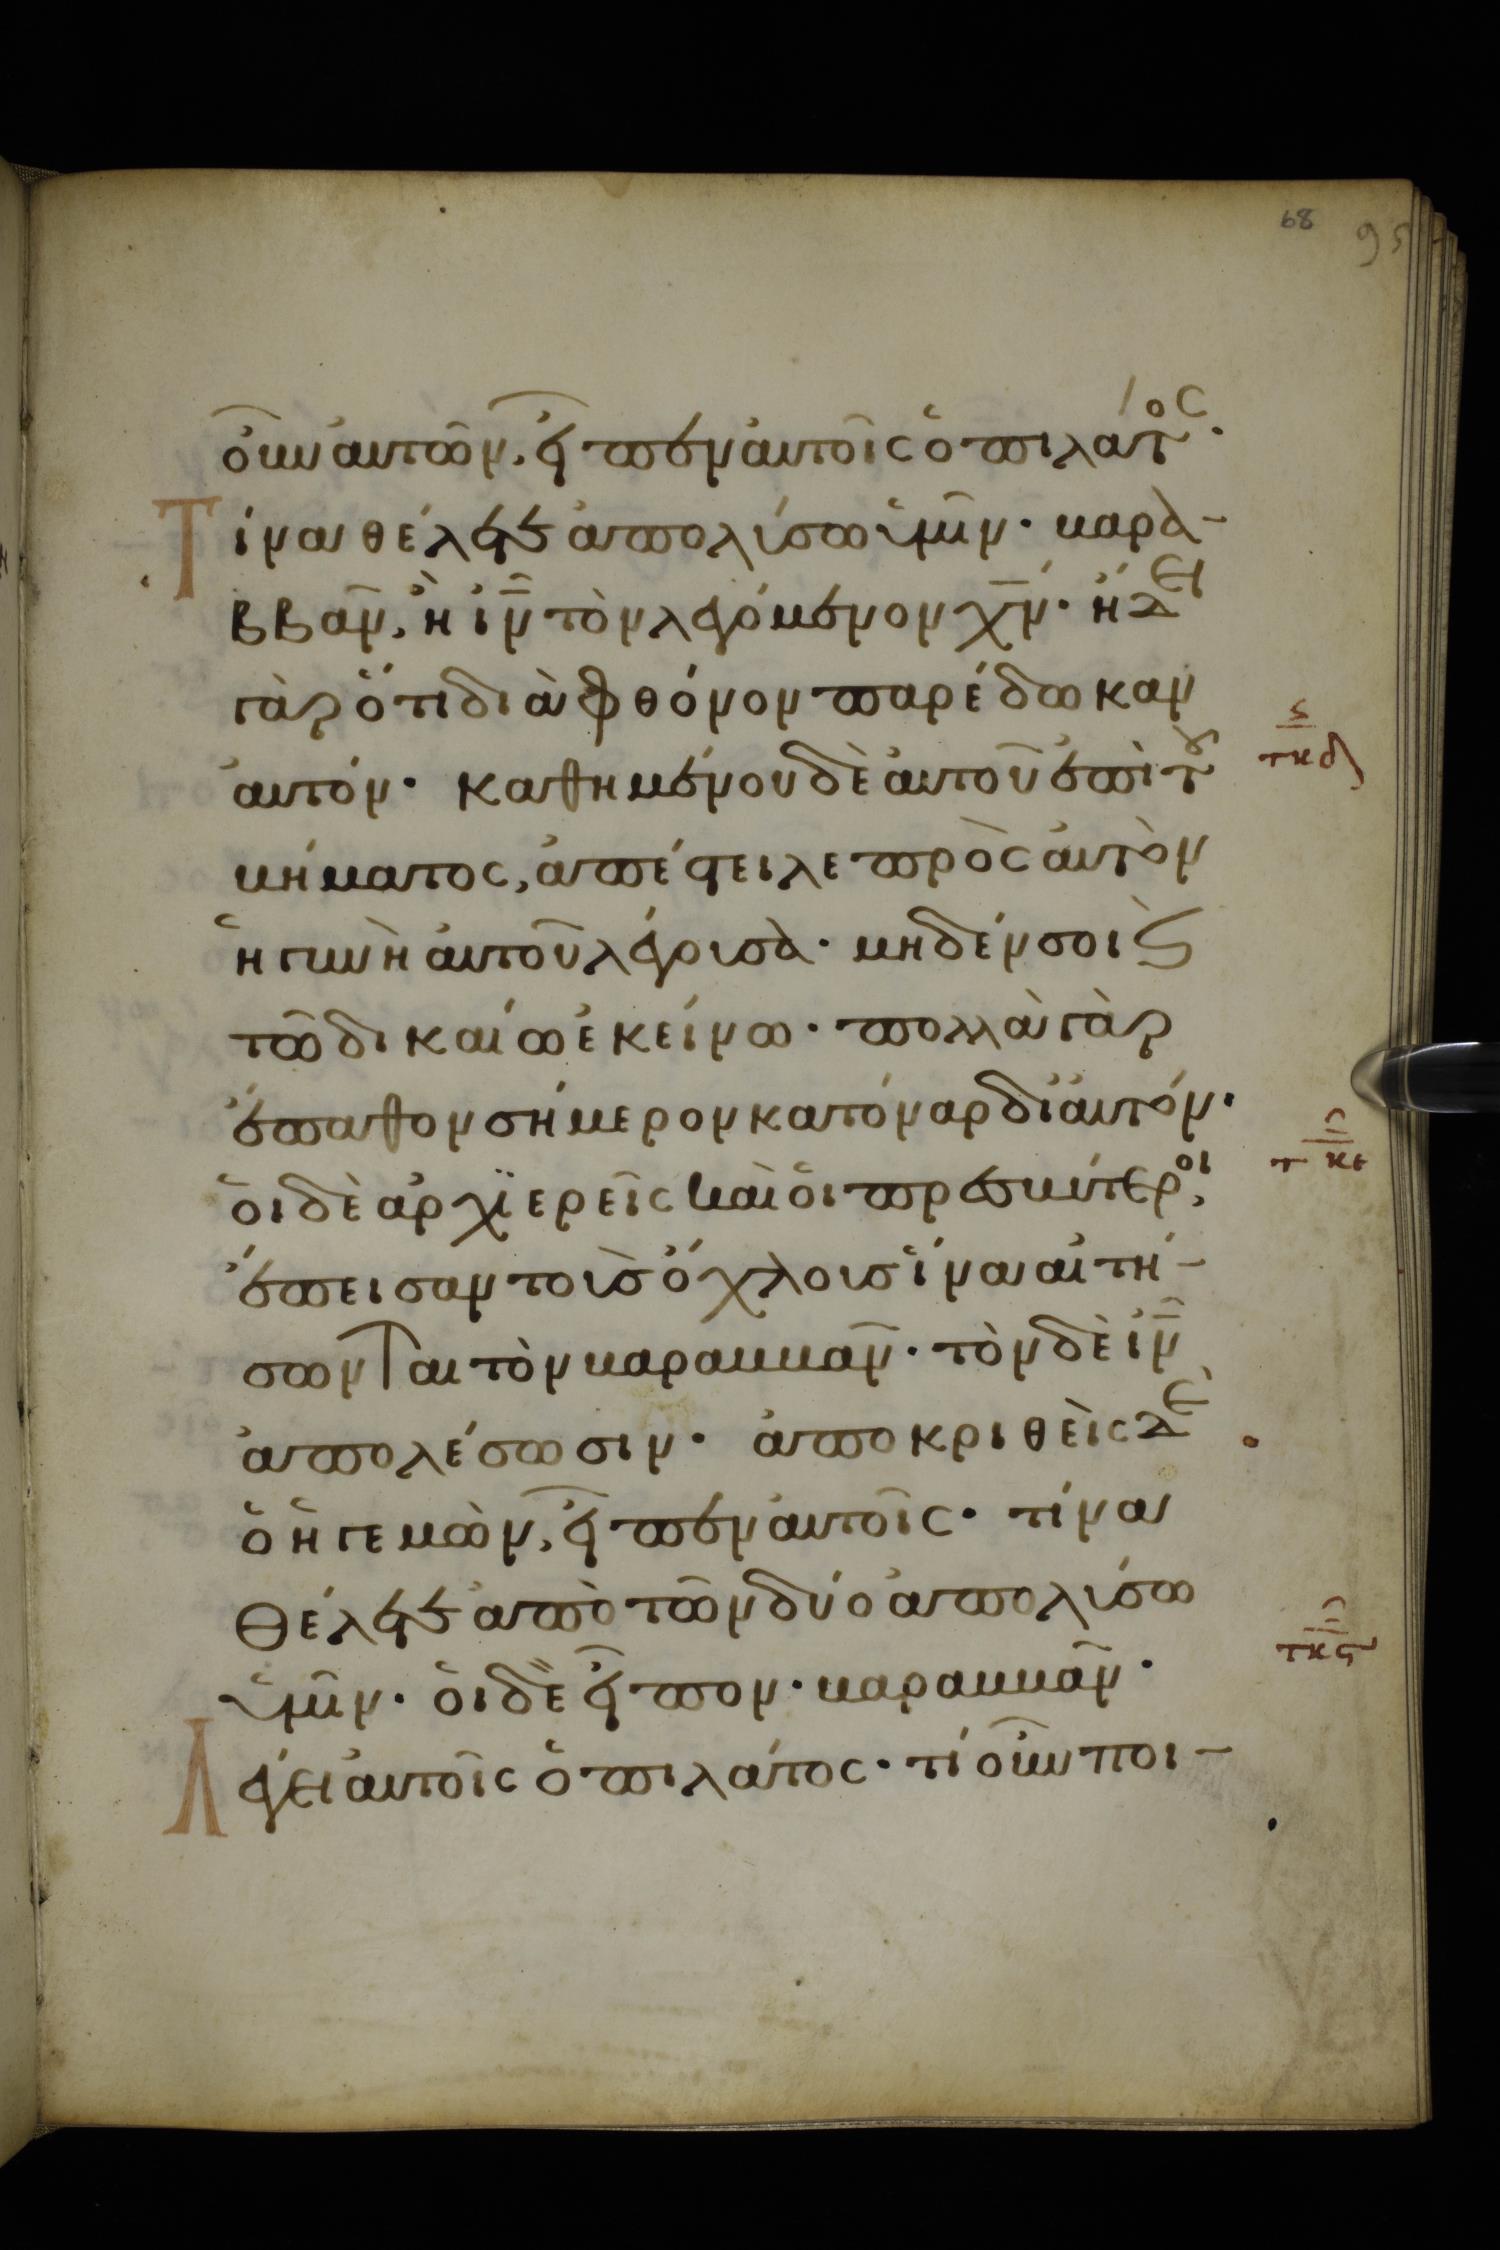 68
95
οὖν αὐτῶν, εἶπεν αὐτοῖς ὁ πιλάτος·
Τίνα θέλετε ἀπολύσω ὑμῖν· βαρα-
ββᾶν, ἢ ἰν̄ τὸν λεγόμενον χν̄· ἤδει
γὰρ ὅτι διὰ φθόνον παρέδωκαν
αὐτόν· καθημένου δὲ αὐτοῦ ἐπὶ τοῦ
ϛ
τκδ
βήματος, ἀπέστειλε πρὸς αὐτὸν
ἡ γυνὴ αὐτοῦ λέγουσα· μηδέν σοι καὶ
τῶ δικαίω ἐκείνω· πολλὰ γὰρ
ἔπαθον σήμερον κατόναρ δι αὐτόν·
τκε
οἱ δὲ ἀρχϊερεῖς καὶ οἱ πρεσβύτεροι,
ἔπεισαν τοὺς ὄχλους ἵνα αἰτή-
σωνται τὸν βαραββᾶν· τὸν δὲ ἰν̄
ἀπολέσωσιν· ἀποκριθεὶς δὲ
ὁ ἡγεμὼν, εἶπεν αὐτοῖς· τίνα
θέλετε ἀπὸ τῶν δύο ἀπολύσω
τκϛ
ὑμῖν· οἱ δὲ εἶπον· βαραββᾶν·
Λέγει αὐτοῖς ὁ πιλάτος· τί οὖν ποι-